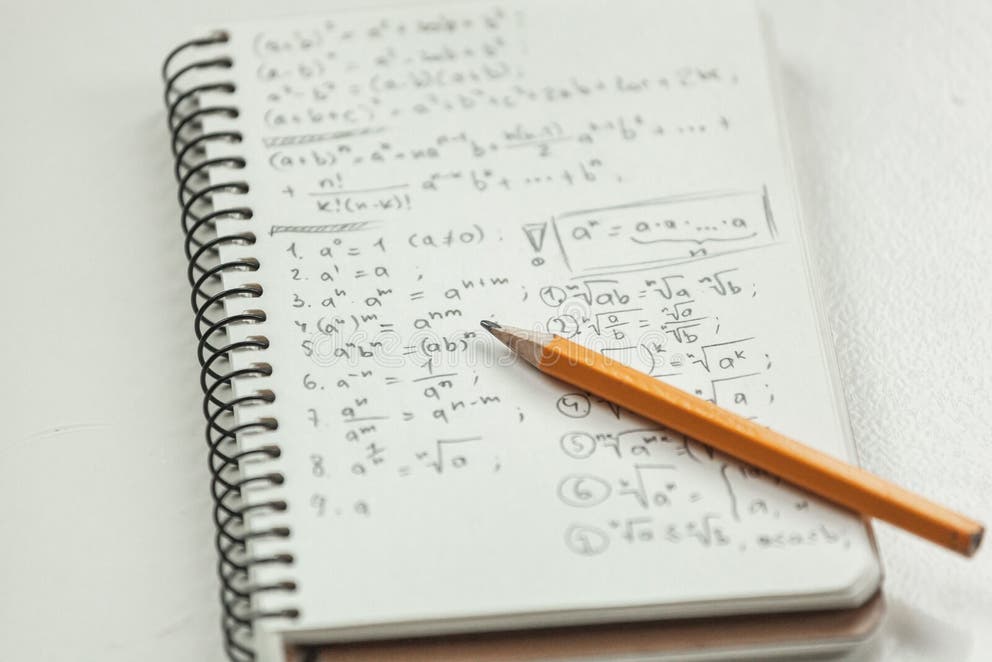 (a+b)² = a² + 2ab + b² ;
(a-b)² = a² - 2ab + b² ;
a² - b² = (a-b)(a+b) ;
(a+b+c)² = a² + b² + c² + 2ab +
(a+b)ⁿ = aⁿ + naⁿ⁻¹b + n(n-1)/2 aⁿ⁻²b² + ... +
+ n!/k!(n-k)! aⁿ⁻ᵏbᵏ + ... + bⁿ ;
! aⁿ = a·a·...·a n
1. a⁰ = 1 (a≠0) ;
2. a¹ = a ;
3. aⁿ · aᵐ = aⁿ⁺ᵐ ;
4. (aⁿ)ᵐ = aⁿᵐ ;
5. aⁿbⁿ = (ab)ⁿ
6. a⁻ⁿ = 1/aⁿ ;
7. aⁿ/aᵐ = aⁿ⁻ᵐ ;
8. a^(1/n) = ⁿ√a ;
9. a
① ⁿ√ab = ⁿ√a · ⁿ√b ;
② ⁿ√(a/b) = ⁿ√a/ⁿ√b ;
)ᵏ = ⁿ√aᵏ ;
④ √a ;
⑤
⑥ ⁿ√aⁿ = { a,
⑦ ⁿ√a ≤ ⁿ√b ,